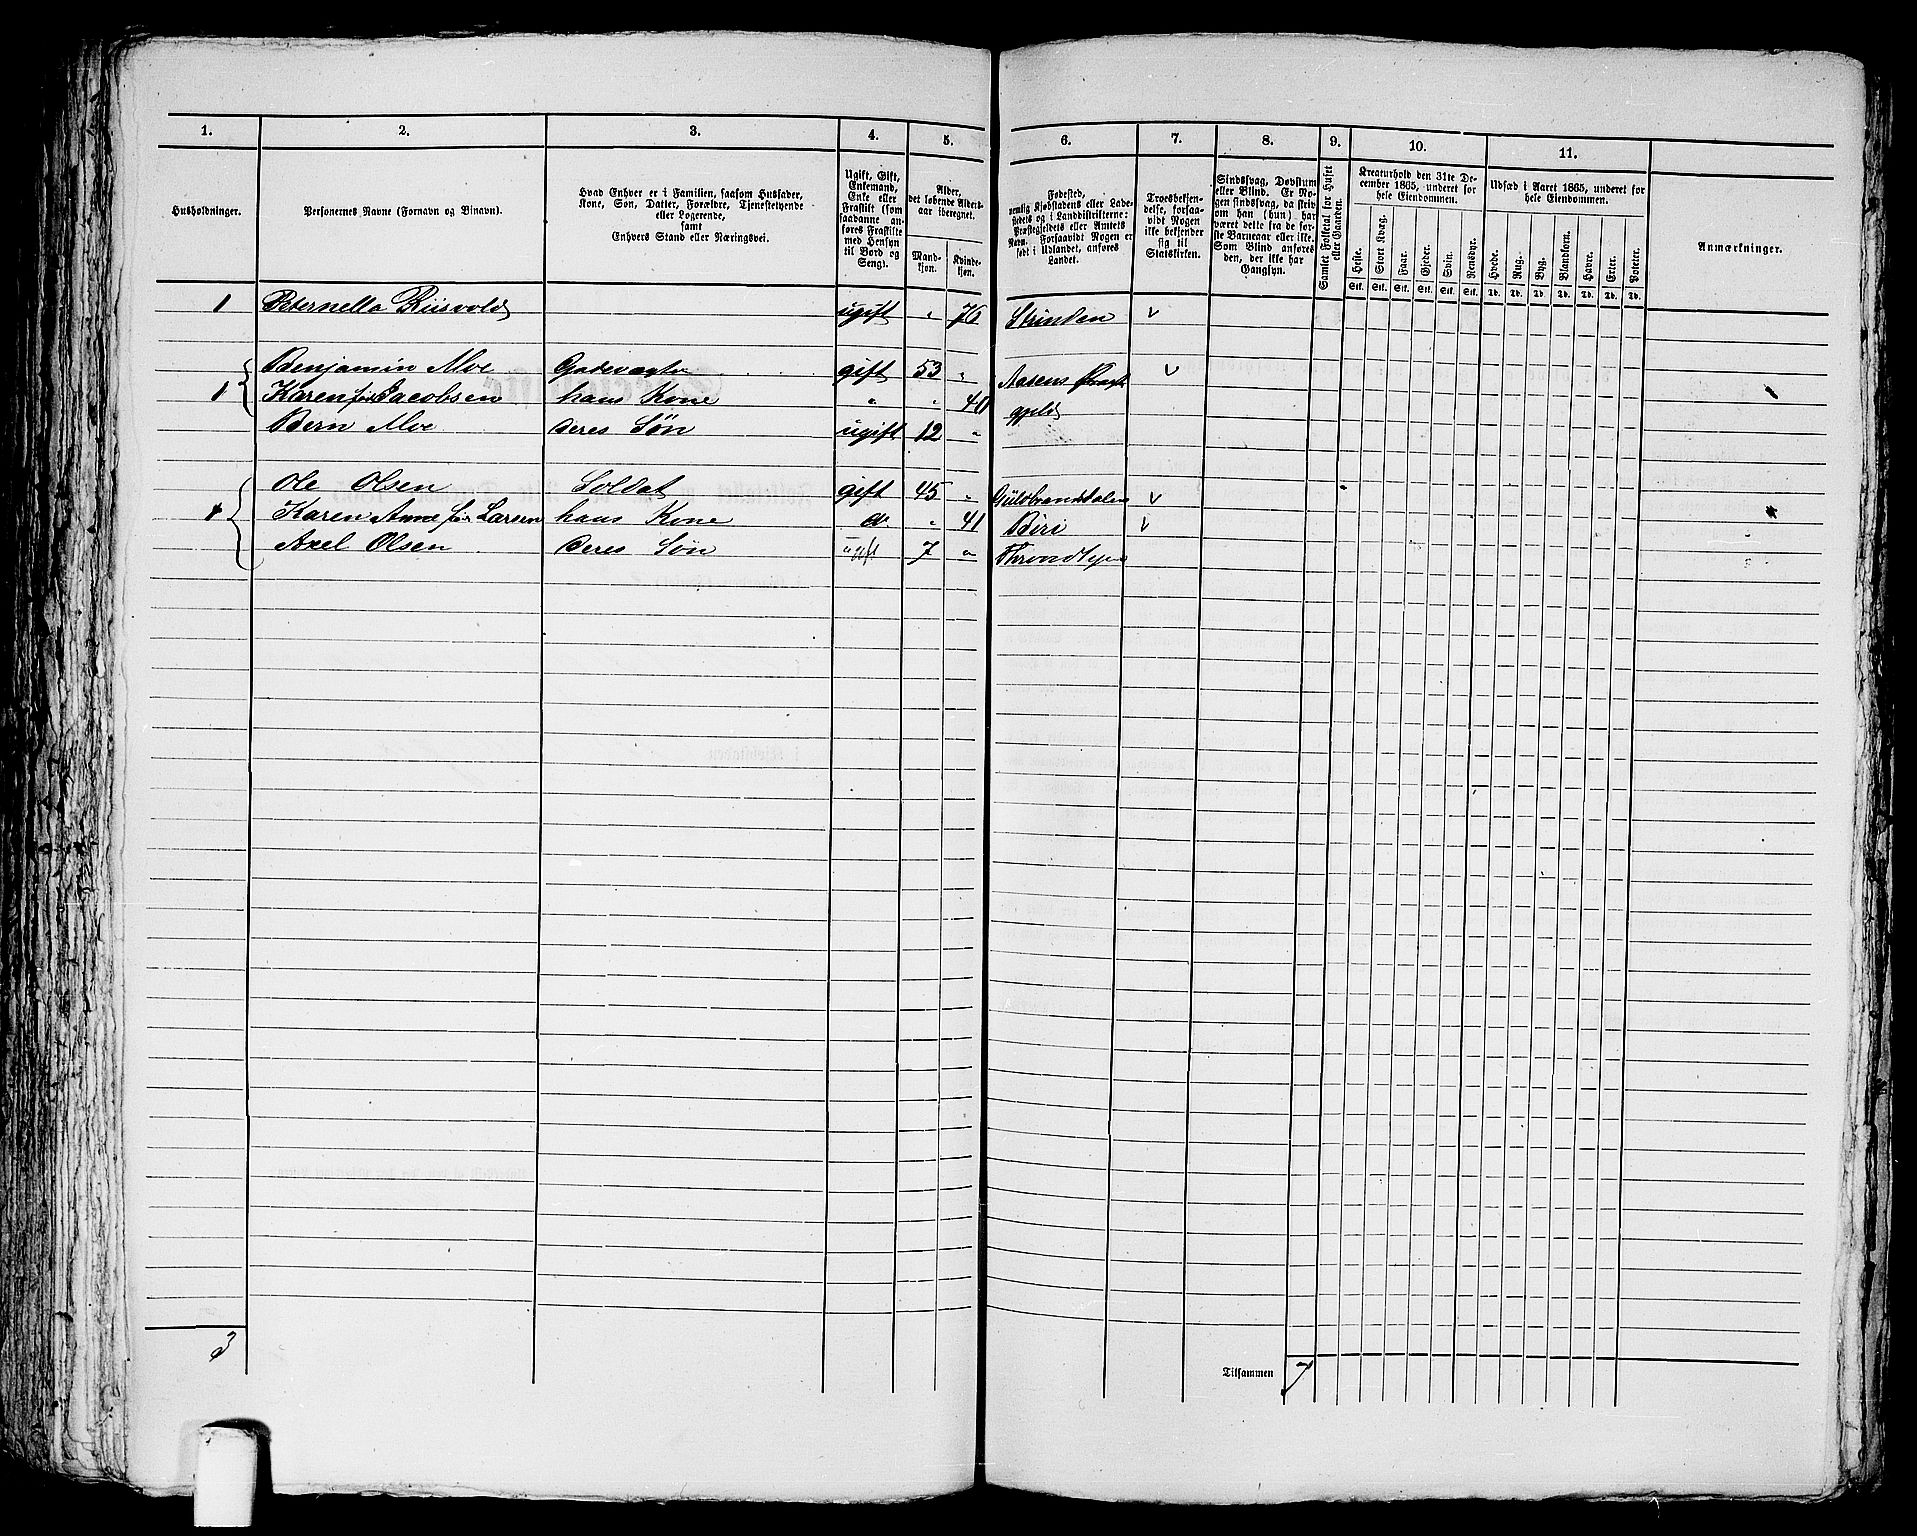 1. 2. 3. 4. 5. 6. 7. 8. 9. 10. 11.
Husholdninger.
Personernes Navne (Fornavn og Binavn).
Hvad Enhver er i Familien, saasom Husfader,
Kone, Søn, Datter, Forældre, Tjenestetyende
eller Logerende,
samt
Enhvers Stand eller Næringsvei.
Ugift, Gift,
Enkemand,
Enke eller
Fraskilt (som
saadanne an-
føres Fraskilte
med Hensyn
til Bord og
Seng).
Alder,
det løbende Alders-
aar iberegnet.
Mand-
kjøn.
Kvinde-
kjøn.
Fødested,
nemlig Kjøbstadens eller Lade-
stedets og i Landdistrikterne:
Præstegjeldets eller Amtets
Navn. Forsaavidt Nogen er
født i Udlandet, anføres
Landet.
Troesbekjen-
delse, forsaa-
vidt Nogen
ikke bekjender
sig til
Statskirken.
Sindssvag, Døvstum
eller Blind. Er No-
gen sindssvag, da skriv
om han (hun) har
været dette fra de før-
ste Barneaar eller ikke.
Som Blind anføres
den, der ikke har
Gangsyn.
Samlet Folketal for Huset
eller Gaarden.
Kreaturhold den 31te De-
cember 1865, underet for
hele Eiendommen.
Heste. Stort Kvæg. Faar. Gjeder. Svin. Rensdyr.
Stk. Stk. Stk. Stk. Stk. Stk.
Udsæd i Aaret 1865, underet for
hele Eiendommen.
Hvede. Rug. Byg. Blandkorn. Havre. Erter. Poteter.
Td. Td. Td. Td. Td. Td. Td.
Anmærkninger.
1 Peternella Riisvold ugift " 76 Strinden v
Benjamin Alve Gadevægter gift 53 " Aasens Præste v
1 Karen før Jacobsen hans Kone " " 40 gjeld
Bern Alve deres Søn ugift 12 "
Ole Olsen Soldat gift 45 " Guldbrandsdalen v
1 Karen Anne før Larsen hans Kone do " 41 Biri v
Axel Olsen deres Søn ugift 7 " Throndhjem
3
Tilsammen 7